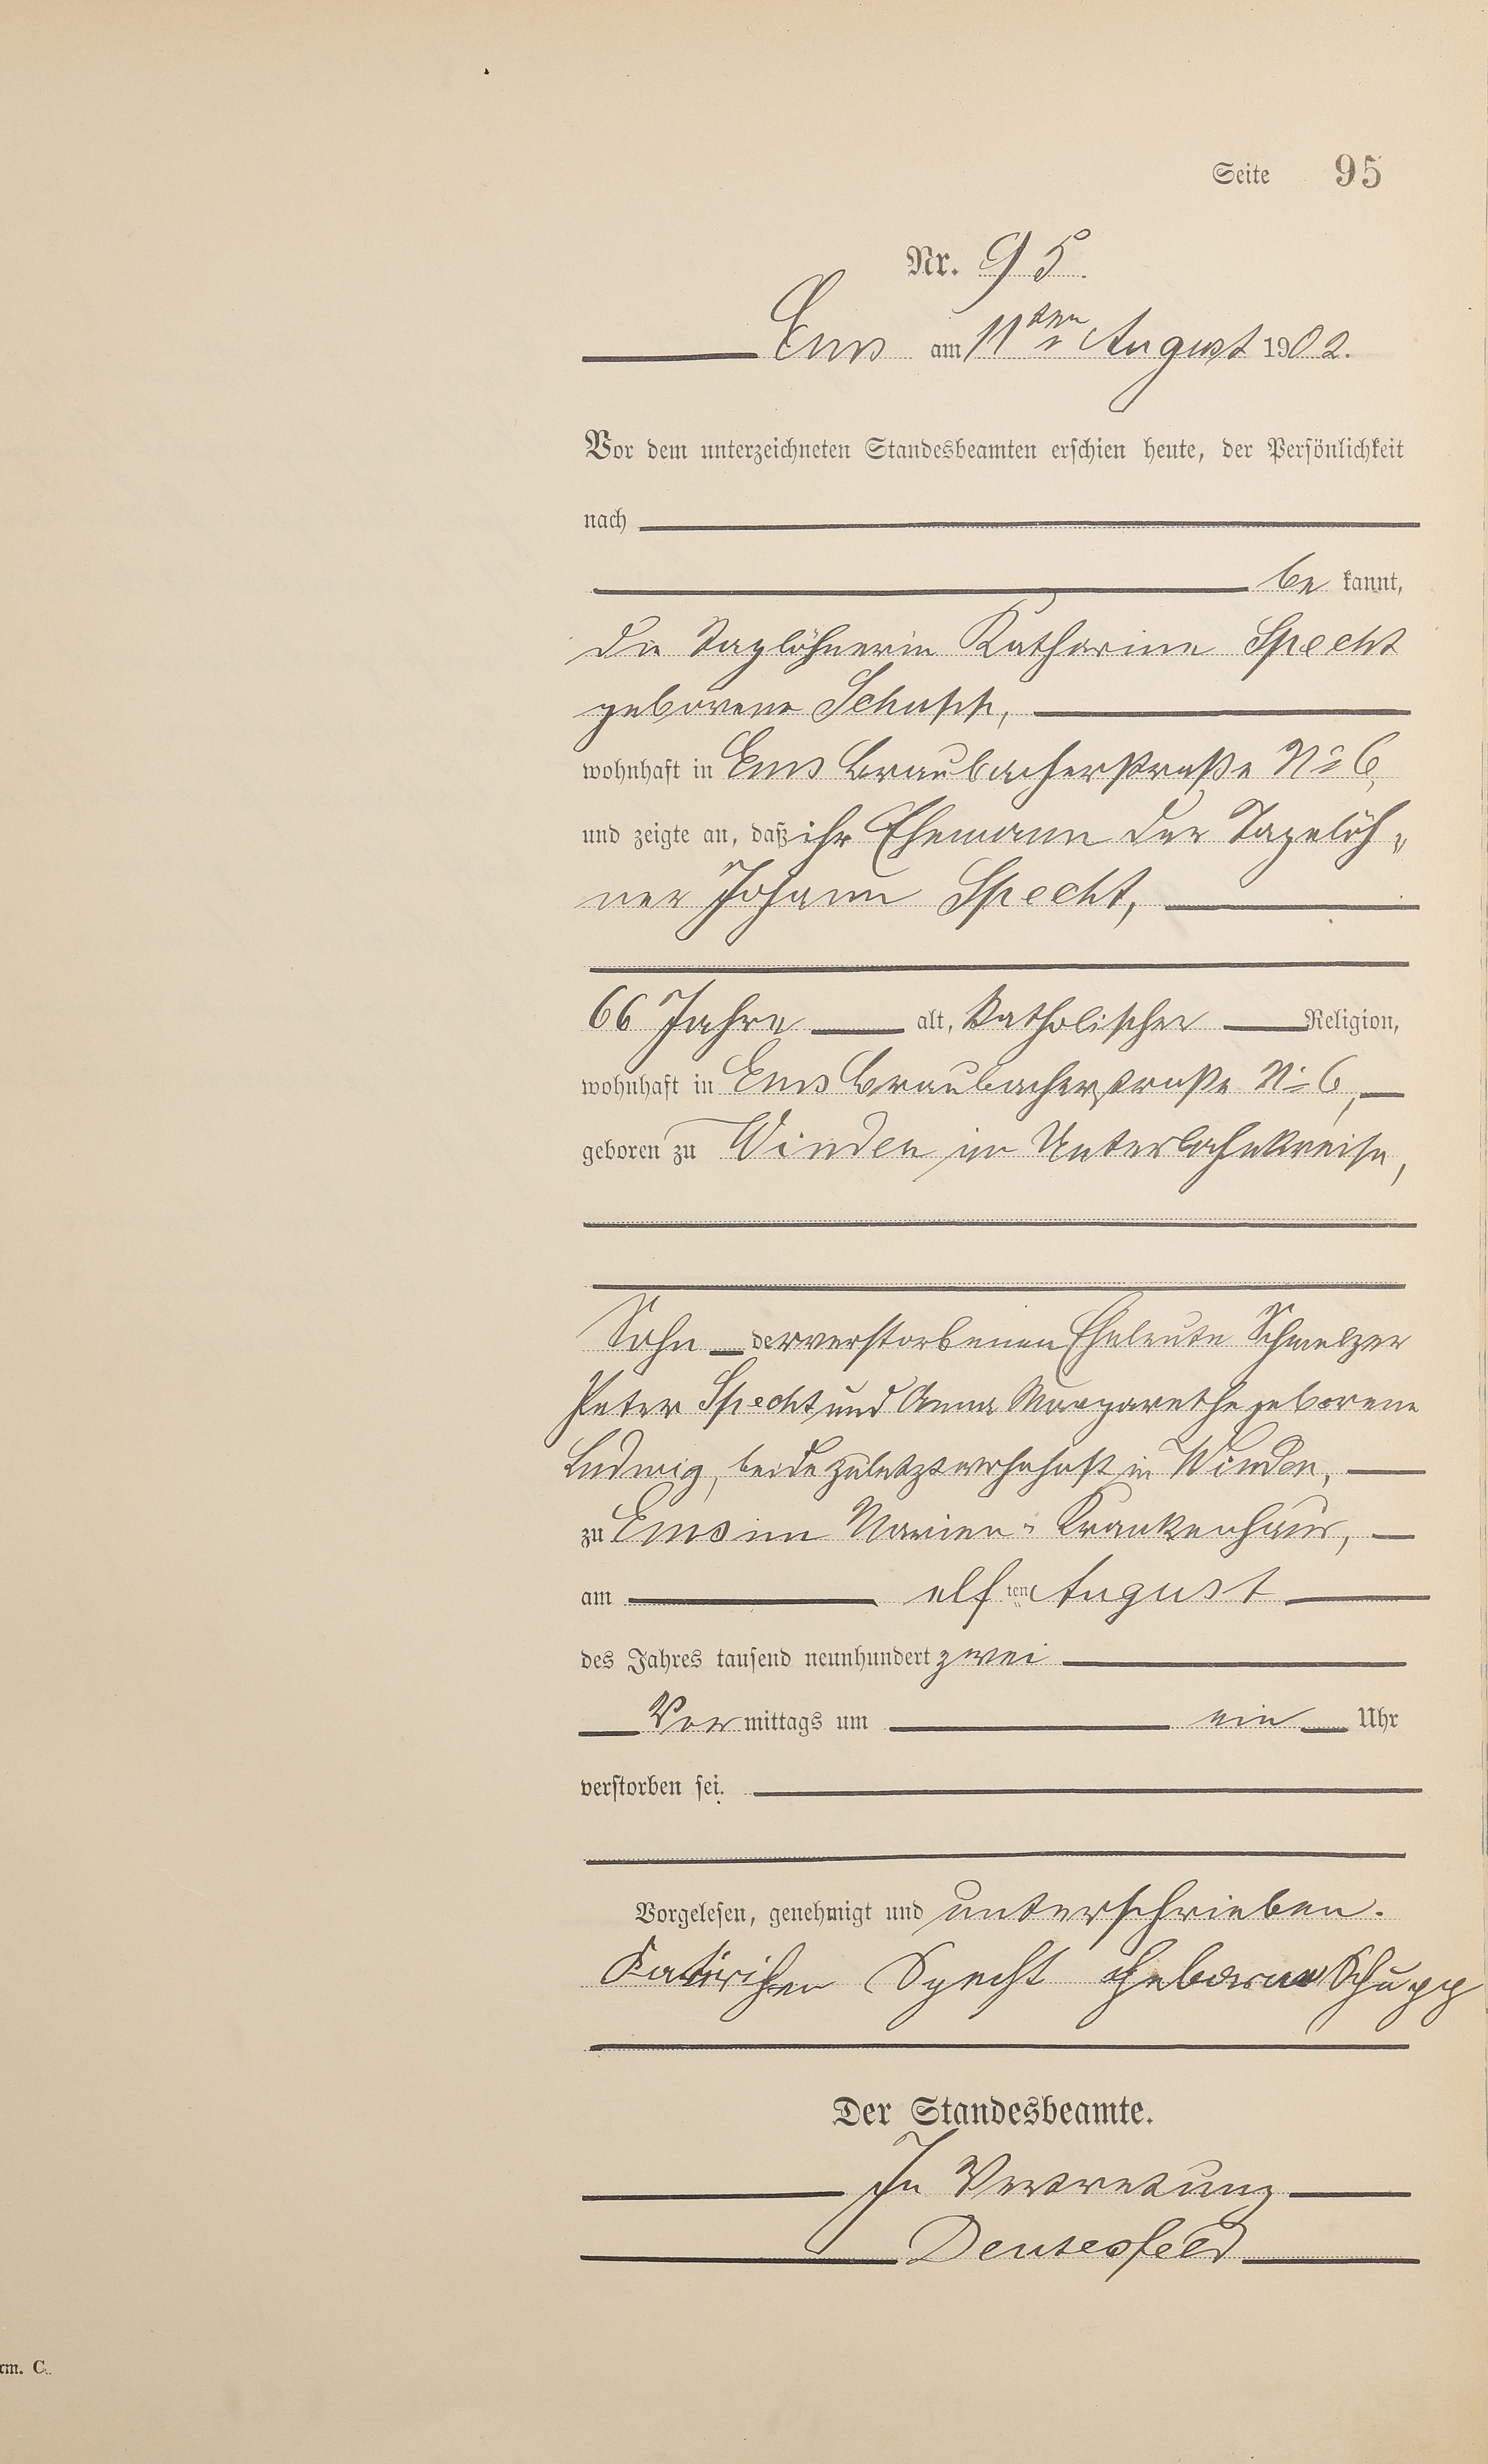 Seite 95
Nr. 95.
Ems am 11ten August 1902.
Vor dem unterzeichneten Standesbeamten erschien heute, der Persönlichkeit
nach
be kannt,
die Taglöhnerin Katharina Specht
geborene Schupp,
wohnhaft in Ems Braubacherstraße No 6,
und zeigte an, daß ihr Ehemann der Tagelöh„
ner Johann Specht,
66 Jahre alt, katholischer Religion,
wohnhaft in Ems Braubacherstraße No 6,
geboren zu Winden im Unterlahnkreise,
Sohn der verstorbenen Eheleute Schmelzer
Peter Specht und Anna Margarethe geborene
Ludwig, beide zuletzt wohnhaft in Winden,
zu Ems im Marien-Krankenhaus,
am elf ten August
des Jahres tausend neunhundert zwei
Vor mittags um ein Uhr
verstorben sei.
Vorgelesen, genehmigt und unterschrieben.
Specht Geborne Schupp
Der Standesbeamte.
In Vertretung
rm. C.